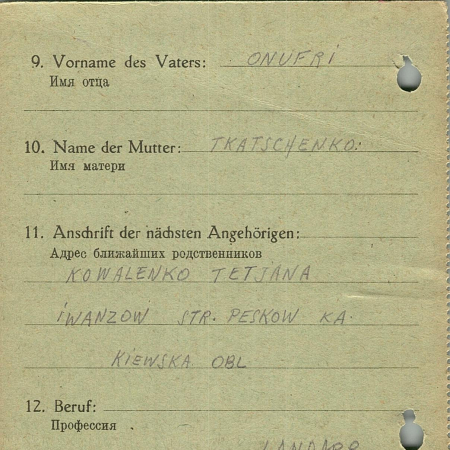 9. Vorname des Vaters: ONUFRI
Имя отца
10. Name der Mutter: TKATSCHENKO.
Имя матери
11. Anschrift der nächsten Angehörigen:
Адрес ближайших родственников
KOWALENKO TETJANA
IWANZOW STR. PESKOW KA.
KIEWSKA OBL
12. Beruf:
Профессия